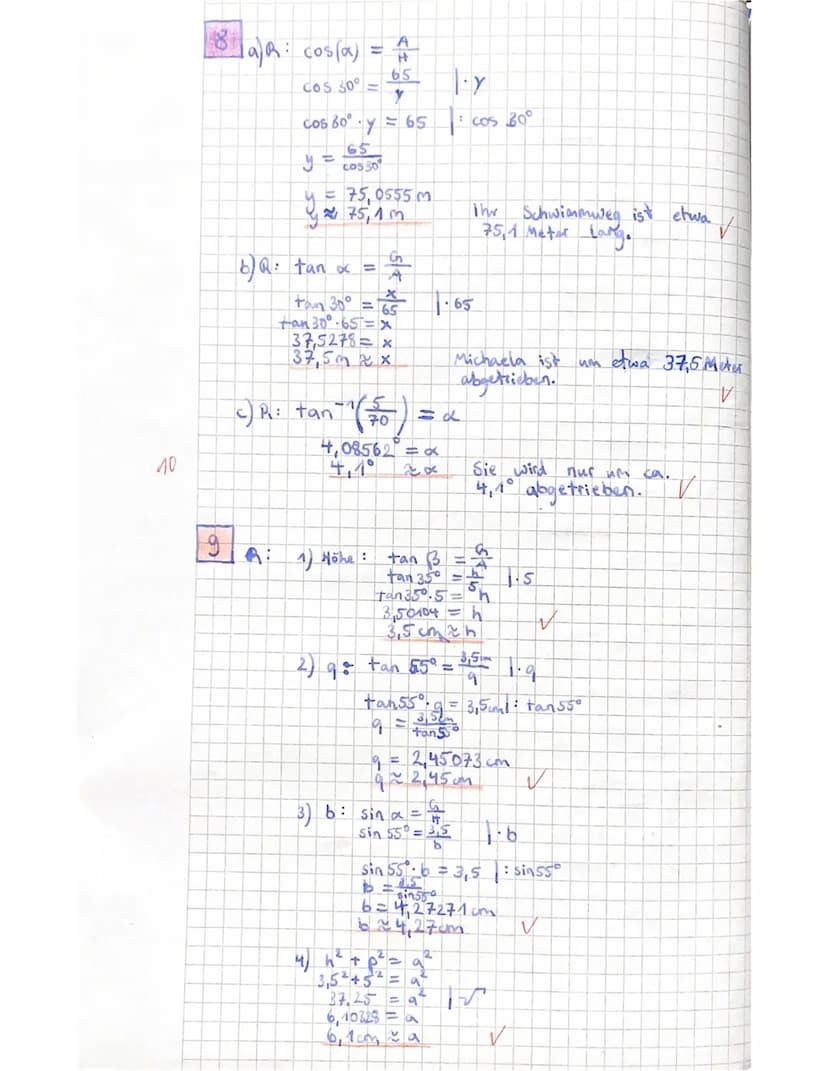 8 a) R: cos(α) = A/H
cos 30° = 65/y | · y
cos 30° · y = 65 | : cos 30°
y = 65/cos 30°
y = 75,0555 m
y ≈ 75,1 m
Ihr Schwimmweg ist etwa
75,1 Meter lang. ✓
b) R: tan α = G/A
tan 30° = x/65 | · 65
tan 30° · 65 = x
37,5278 = x
37,5 m ≈ x
Michaela ist um etwa 37,5 Meter
abgetrieben. ✓
c) R: tan⁻¹(5/70) = α
4,08562° = α
4,1° ≈ α
Sie wird nur um ca.
4,1° abgetrieben. ✓
10
9 R: 1) Höhe: tan β = G/A
tan 35° = h/5 | · 5
tan 35° · 5 = h
3,50104 = h
3,5 cm ≈ h ✓
2) q: tan 55° = 3,5cm/q | · q
tan 55° · q = 3,5cm | : tan 55°
q = 3,5cm/tan 55°
q = 2,45073 cm
q ≈ 2,45 cm ✓
3) b: sin α = G/H
sin 55° = 3,5/b | · b
sin 55° · b = 3,5 | : sin 55°
b = 3,5/sin 55°
b = 4,27271 cm
b ≈ 4,27 cm ✓
4) h² + p² = a²
3,5² + 5² = a²
37,25 = a² | √
6,10328 = a
6,1 cm ≈ a ✓